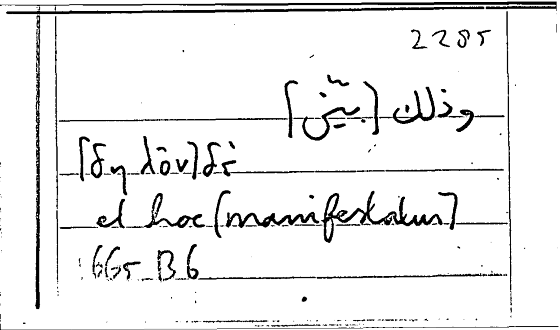 2285
وذلك [بيّن]
[δῆλον] δέ
et hoc [manifestatum]
:665 B6